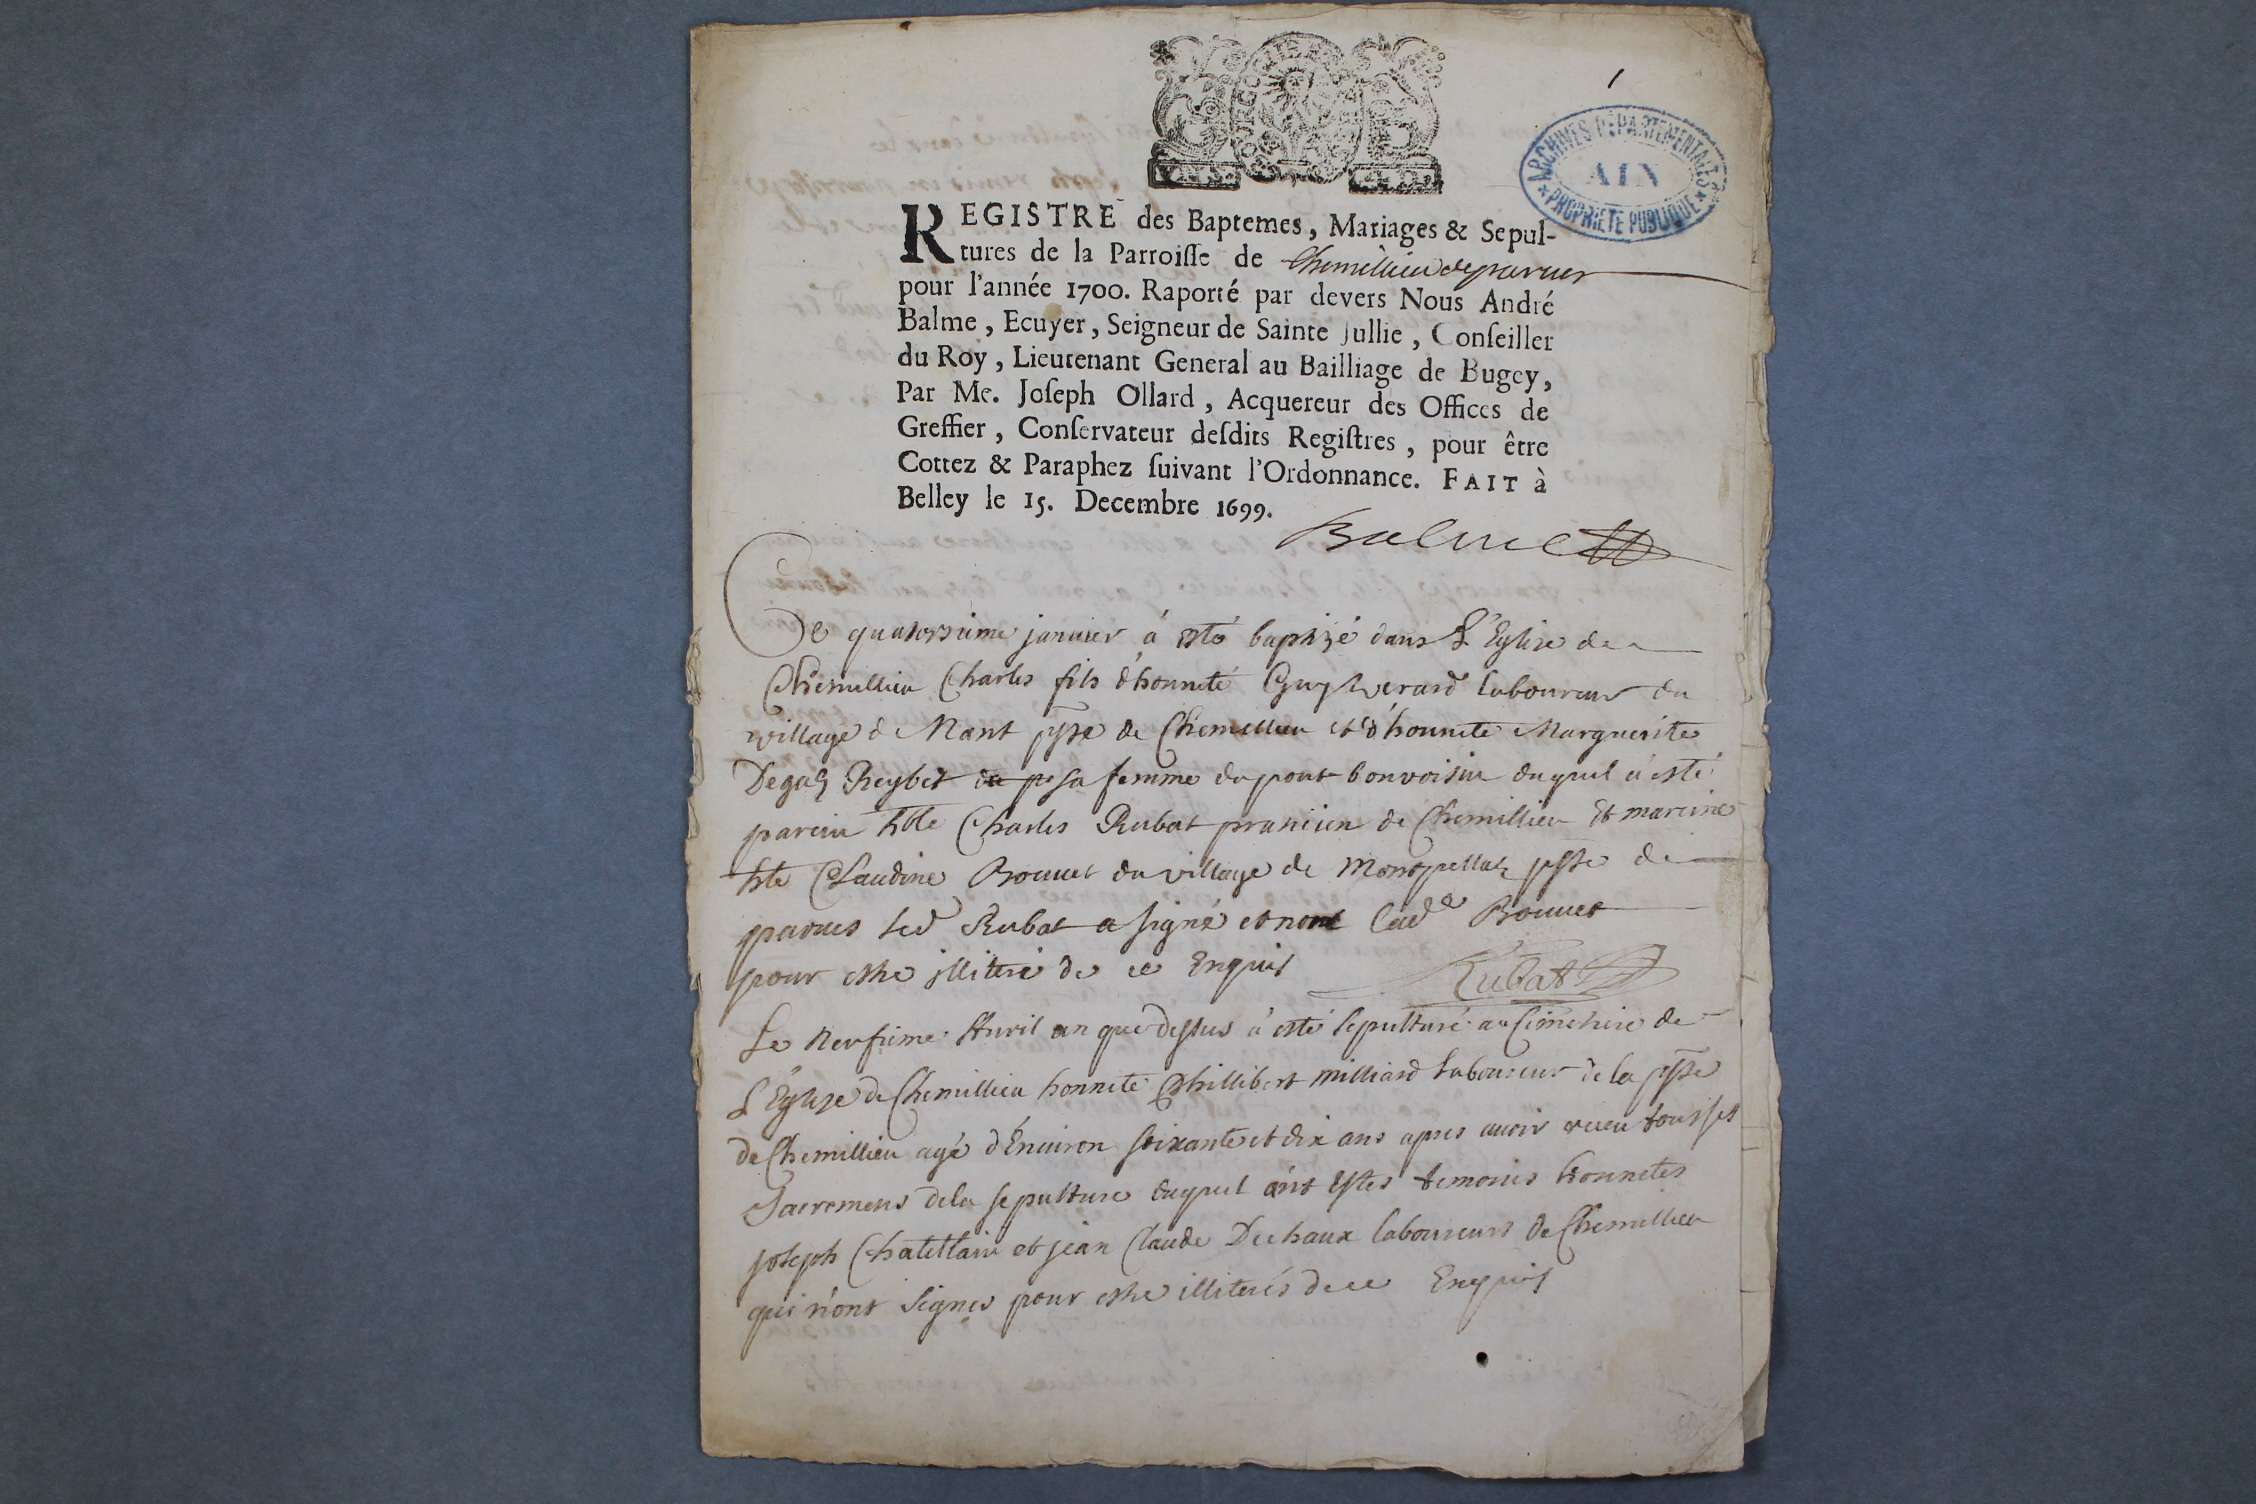 1
ARCHIVES DÉPARTEMENTALES
AIN
PROPRIÉTÉ PUBLIQUE
REGISTRE des Baptemes, Mariages & Sepul-
tures de la Parroisse de Chemillieu de parues
pour l'année 1700. Raporté par devers Nous André
Balme, Ecuyer, Seigneur de Sainte Jullie, Conseiller
du Roy, Lieutenant General au Bailliage de Bugey,
Par Me. Joseph Ollard, Acquereur des Offices de
Greffier, Conservateur desdits Registres, pour être
Cottez & Paraphez suivant l'Ordonnance. FAIT à
Belley le 15. Decembre 1699.
Balme
Ce quatorzieme januier á esté baptizé dans L'Eglize de
Chemillieu Charles fils d'honneté Guy laboureur du
village de Nant psse de Chemillieu et d'honnete Marguerite
Reybet sa femme du pont bonvoisin duquel á esté
parein hble Charles Rubat praticien de Chemillieu Et mareine
hte Claudine Bonnet du village de psse de
parues led Rubat a signé et non lade Bonnet
pour estre illiteré de ce Enquis
Rubat
Le neufieme Avril an que dessus á esté sepulturé au simetiere de
L'Eglize de Chemillieu honneté Phillibert milliard laboureur de la psse
de Chemillieu agé d'Enuiron soixante et dix ans apres auoir receu tous ses
Sacremens de la sepulture duquel ont Estes temoins honnetes
joseph Chatellain et jean Claude Dechaux laboureurs de Chemillieu
qui n'ont signes pour estre illiterés de ce Enquis